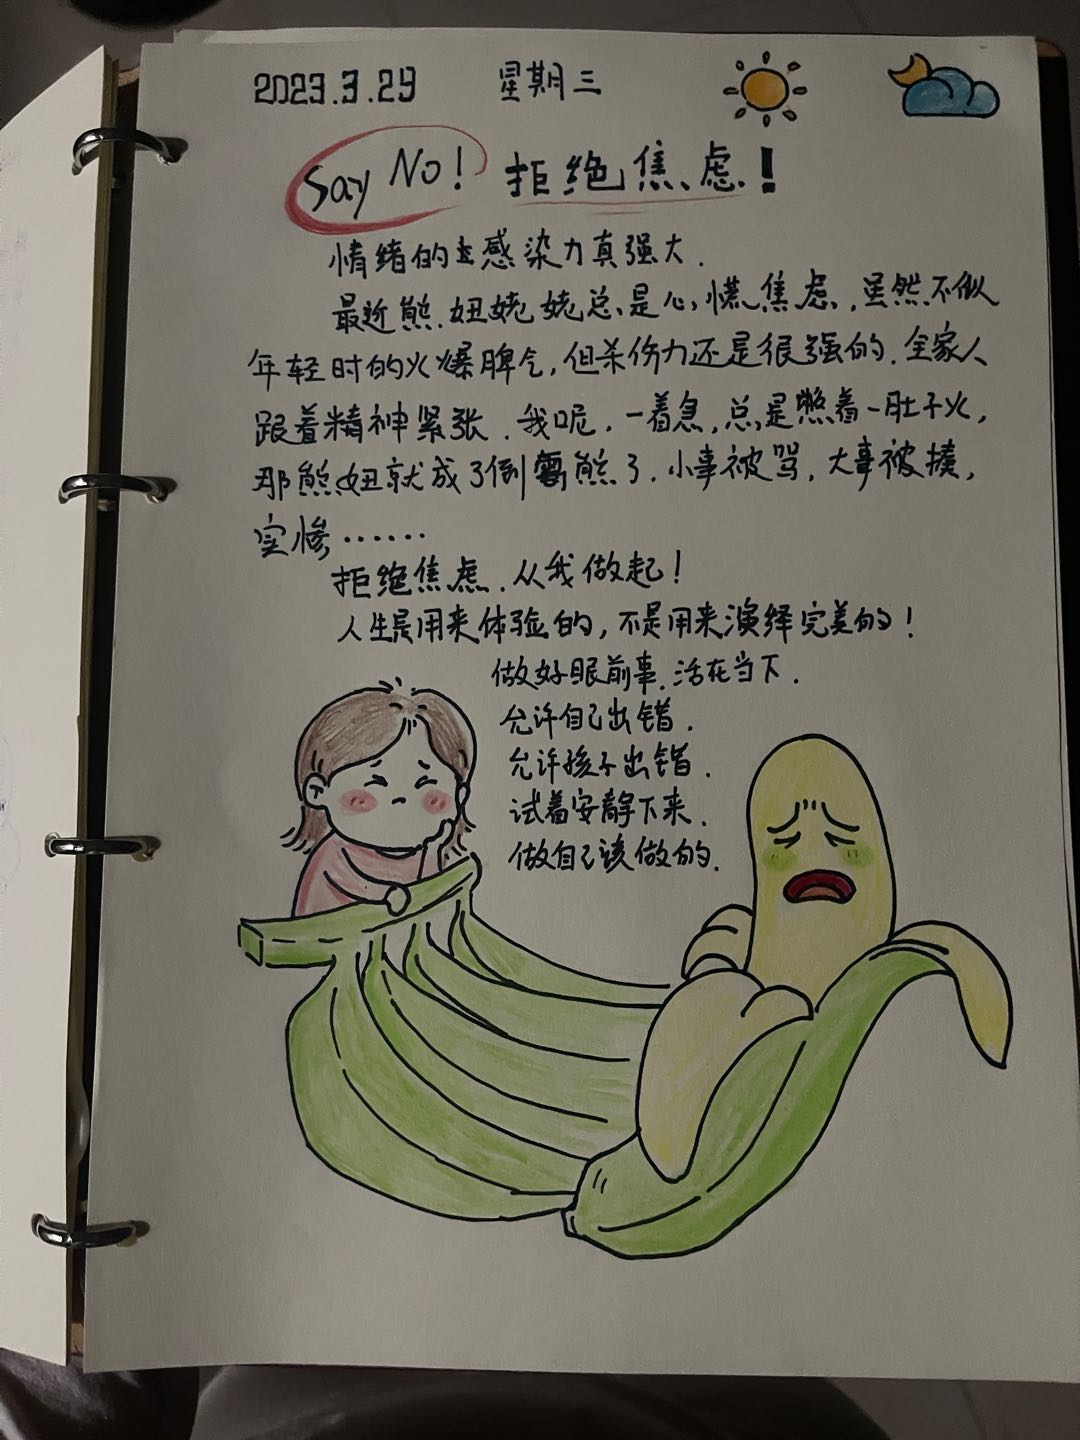 2023.3.29 星期三
Say No! 拒绝焦虑!
情绪的感染力真强大.
最近熊妞姥姥总是心慌焦虑,虽然不似
年轻时的火爆脾气,但杀伤力还是很强的.全家人
跟着精神紧张.我呢,一着急,总是憋着一肚子火,
那熊妞就成了倒霉熊了.小事被骂,大事被揍,
实惨……
拒绝焦虑,从我做起!
人生是用来体验的,不是用来演绎完美的!
做好眼前事,活在当下.
允许自己出错.
允许孩子出错.
试着安静下来.
做自己该做的.